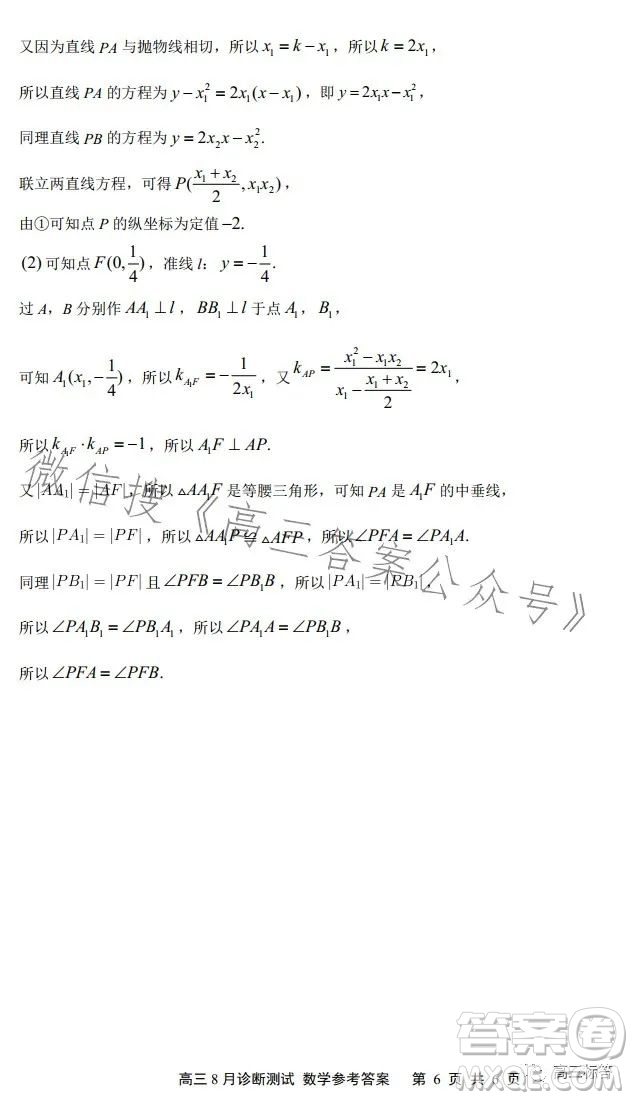 又因为直线 PA 与抛物线相切，所以 x₁ = k − x₁，所以 k = 2x₁，
所以直线 PA 的方程为 y − x₁² = 2x₁(x − x₁)，即 y = 2x₁x − x₁²，
同理直线 PB 的方程为 y = 2x₂x − x₂².
联立两直线方程，可得 P((x₁ + x₂)/2, x₁x₂)，
由①可知点 P 的纵坐标为定值 −2.
(2) 可知点 F(0, 1/4)，准线 l： y = −1/4.
过 A，B 分别作 AA₁ ⊥ l，BB₁ ⊥ l 于点 A₁，B₁，
可知 A₁(x₁, −1/4)，所以 k_{A₁F} = −1/(2x₁)，又 k_{AP} = (x₁² − x₁x₂)/(x₁ − (x₁ + x₂)/2) = 2x₁，
所以 k_{A₁F} · k_{AP} = −1，所以 A₁F ⊥ AP.
又 |AA₁| = |AF|，所以 △AA₁F 是等腰三角形，可知 PA 是 A₁F 的中垂线，
所以 |PA₁| = |PF|，所以 △AA₁P ≌ △AFP，所以 ∠PFA = ∠PA₁A.
同理 |PB₁| = |PF| 且 ∠PFB = ∠PB₁B，所以 |PA₁| = |PB₁|，
所以 ∠PA₁B₁ = ∠PB₁A₁，所以 ∠PA₁A = ∠PB₁B，
所以 ∠PFA = ∠PFB.
微信搜《高三答案公众号》
高三 8 月诊断测试 数学参考答案 第 6 页 共 6 页
答案圈
高三标答
MXQE.COM